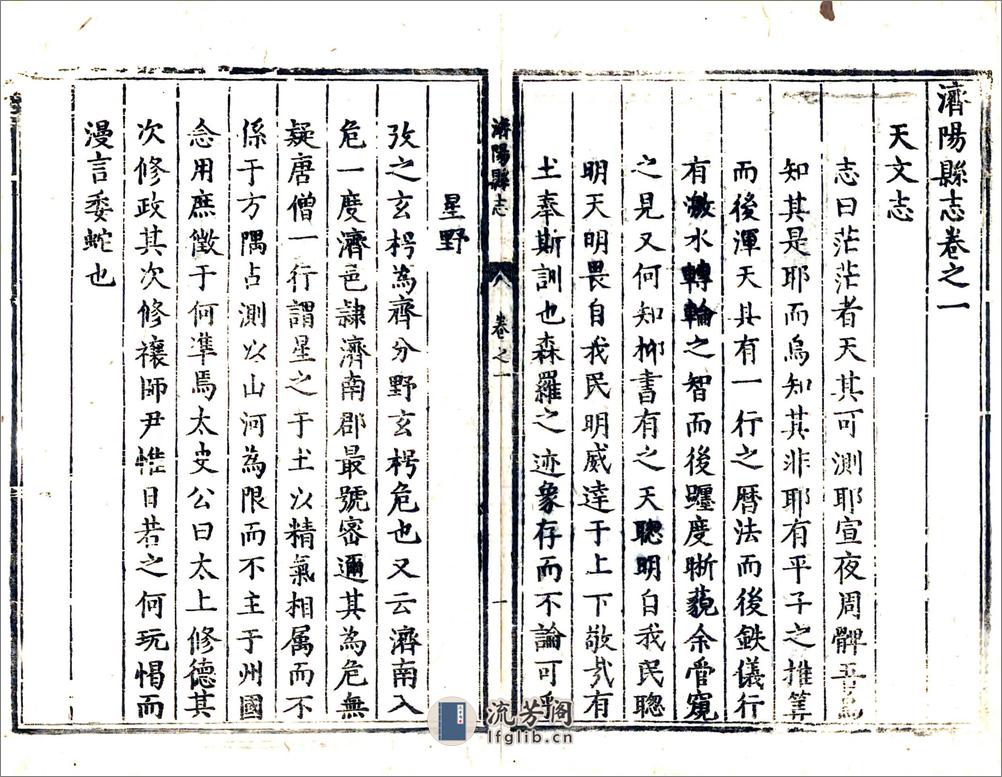 濟陽縣志卷之一
天文志
志曰茫茫者天其可測耶宣夜周髀吾烏
知其是耶而烏知其非耶有平子之推筭
而後渾天具有一行之曆法而後鉄儀行
有激水轉輪之智而後躔度晰藐余管窺
之見又何知栁書有之天聰明自我民聰
明天明畏自我民明威達于上下敬㢤有
土奉斯訓也森羅之迹象存而不論可乎
濟陽縣志
卷之一
一
星野
攷之玄枵為齊分野玄枵危也又云濟南入
危一度濟邑隷濟南郡最號密邇其為危無
疑唐僧一行謂星之于土以精氣相属而不
係于方隅占測以山河為限而不主于州國
念用庶徵于何凖焉太史公曰太上修德其
次修政其次修禳師尹惟日若之何玩愒而
漫言委蛇也
流芳阁
lfglib.cn